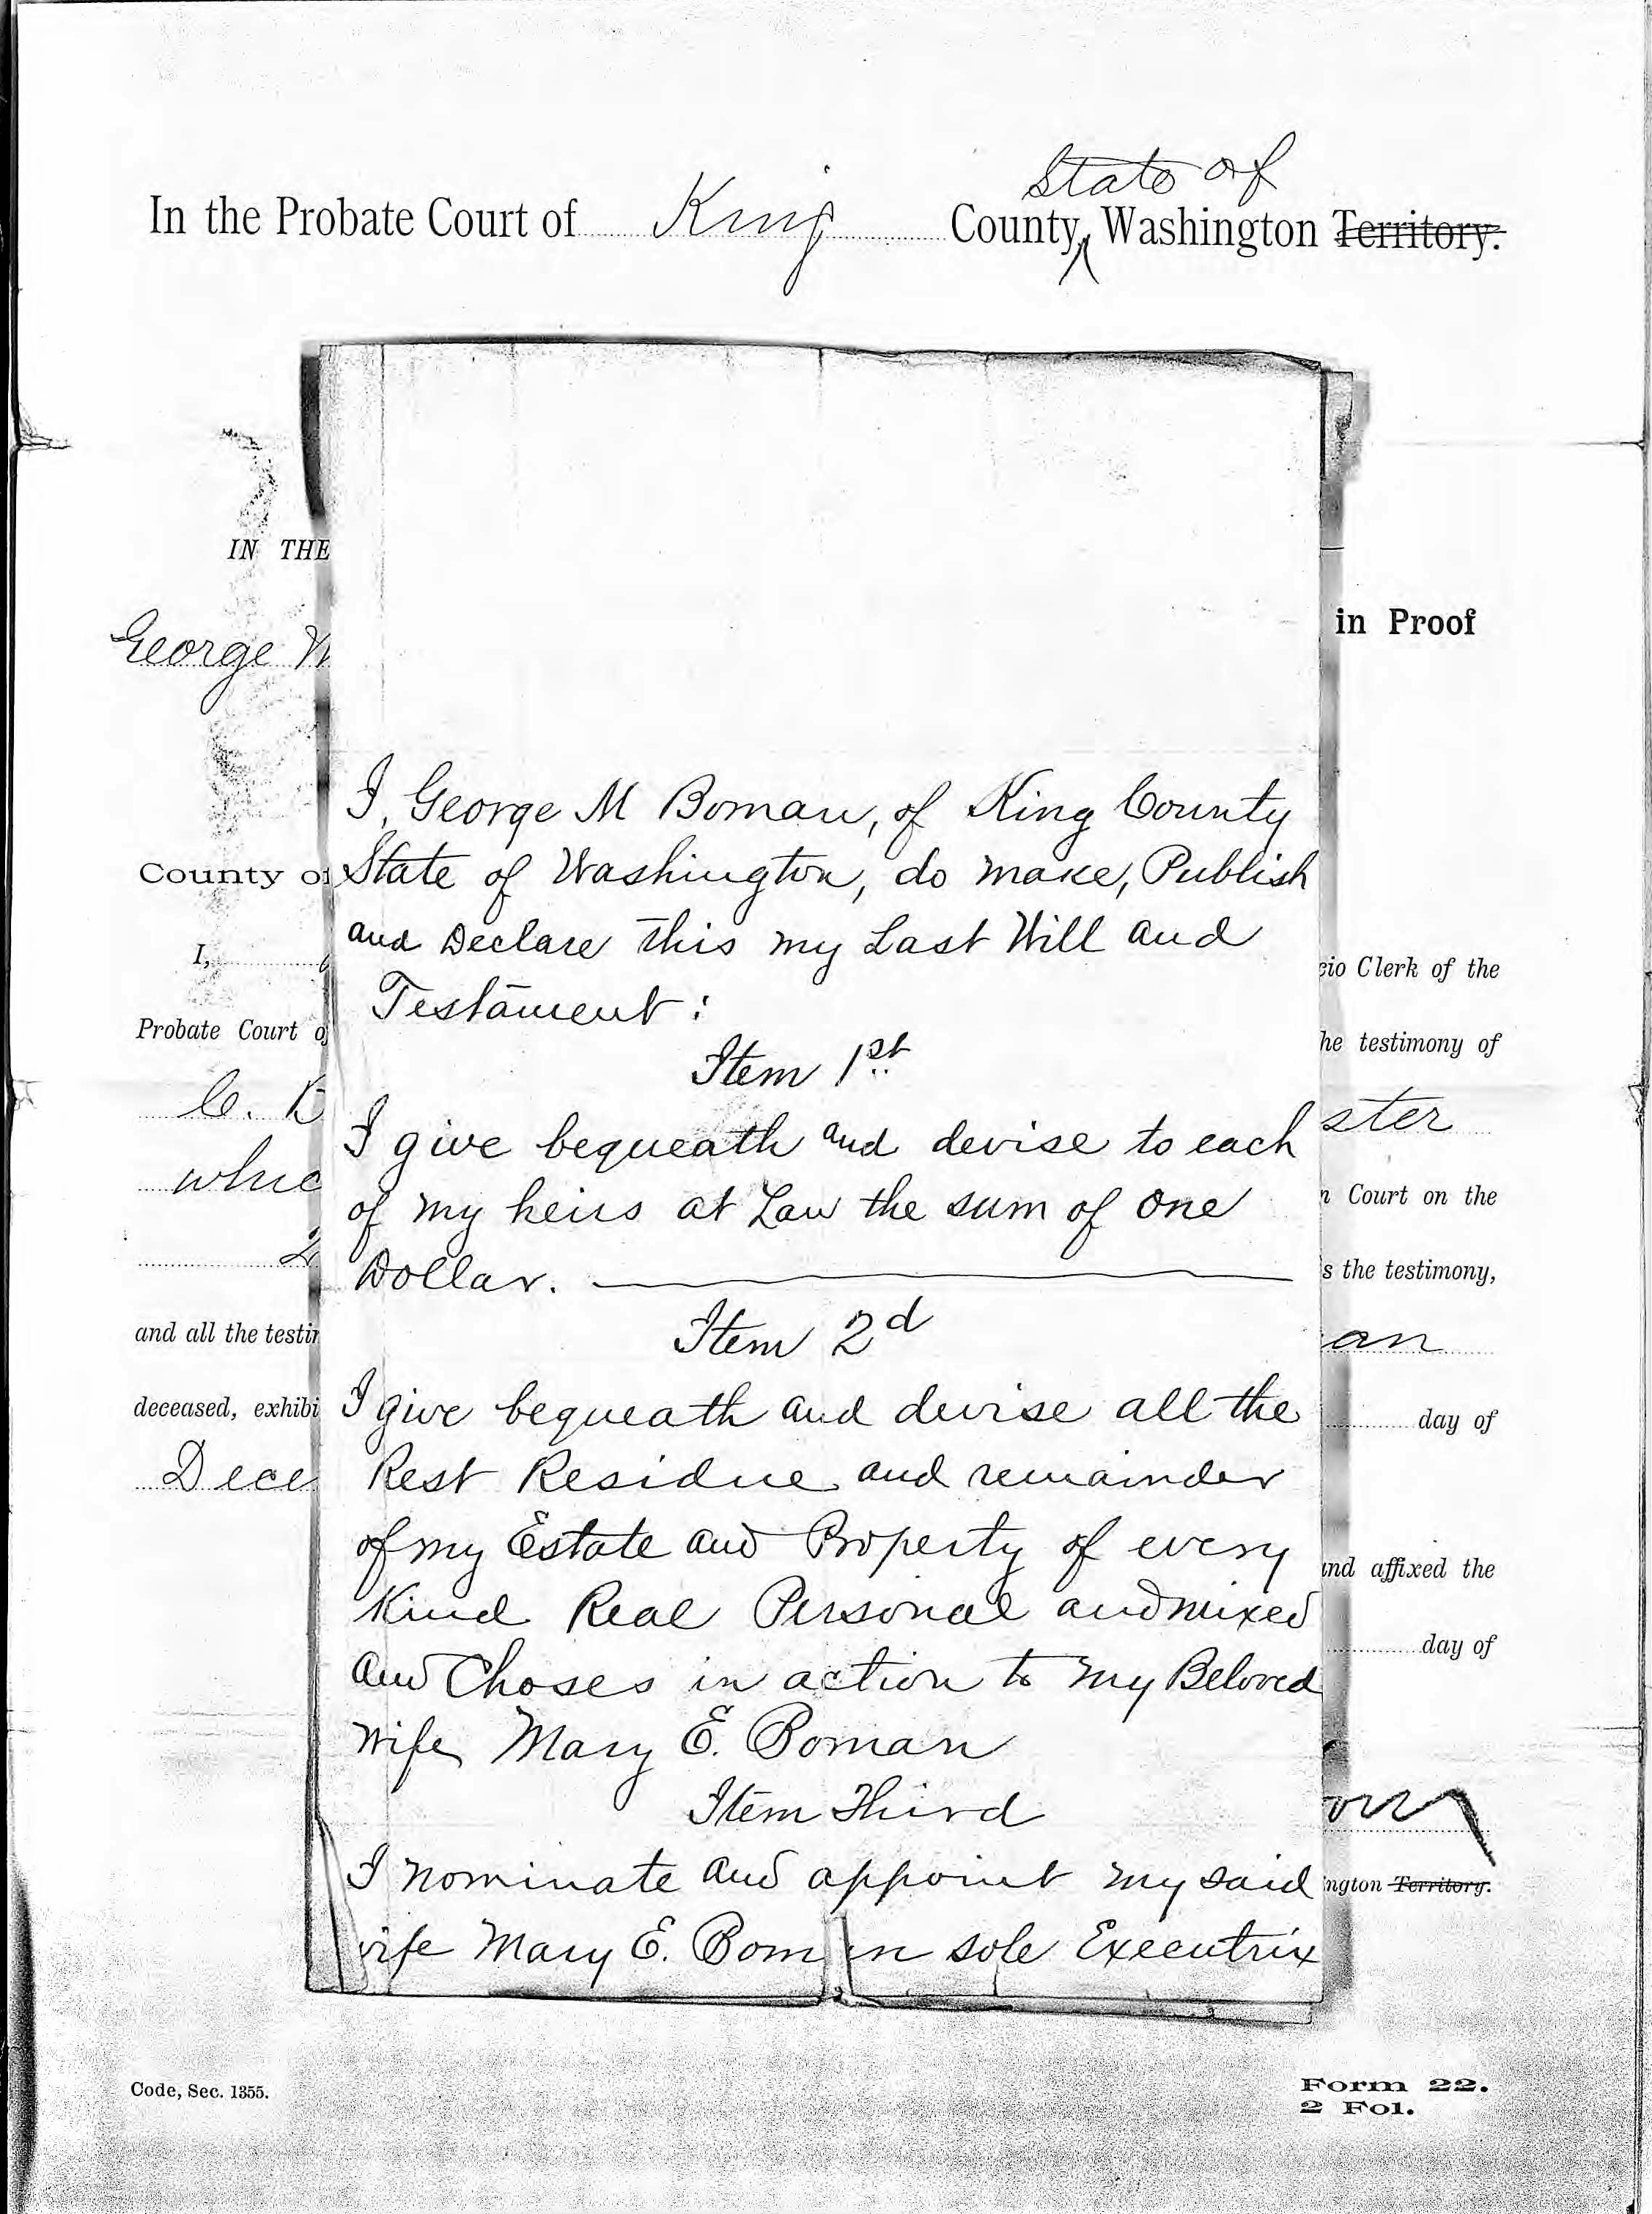 State of
In the Probate Court of King County, Washington Territory.
IN THE
in Proof
George
I, George M Boman, of King County
County of State of Washington, do make, Publish
and Declare this my Last Will and
I,
cio Clerk of the
Testament :
Probate Court of
he testimony of
Item 1st
C.
ster
I give bequeath and devise to each
whic
of my heirs at Law the sum of One
n Court on the
2
Dollar.
s the testimony,
Item 2d
and all the testim
an
I give bequeath and devise all the
deceased, exhibi
day of
Rest Residue and remainder
Dece
of my Estate and Property of every
and affixed the
Kind Real Personal and mixed
day of
and Choses in action to my Beloved
wife Mary E. Boman
Item Third
I nominate and appoint my said
ngton Territory.
wife Mary E. Boman sole Executrix
Code, Sec. 1355.
Form 22.
2 Fol.